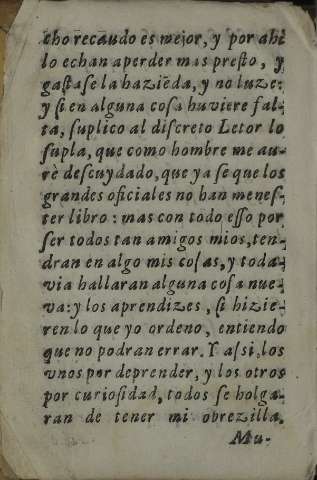 cho recaudo es mejor, y por ahi
lo echan aperder mas presto, y
gastase la haziẽda, y no luze:
y si en alguna cosa huviere fal-
ta, suplico al discreto Letor lo
supla, que como hombre me au-
rè descuydado, que ya se que los
grandes oficiales no han menes-
ter libro: mas con todo esso por
ser todos tan amigos mios, ten-
dran en algo mis cosas, y toda-
via hallaran alguna cosa nue-
va: y los aprendizes, si hizie-
ren lo que yo ordeno, entiendo
que no podran errar. Y assi los
vnos por deprender, y los otros
por curiosidad, todos se holga-
ran de tener mi obrezilla.
Mu-